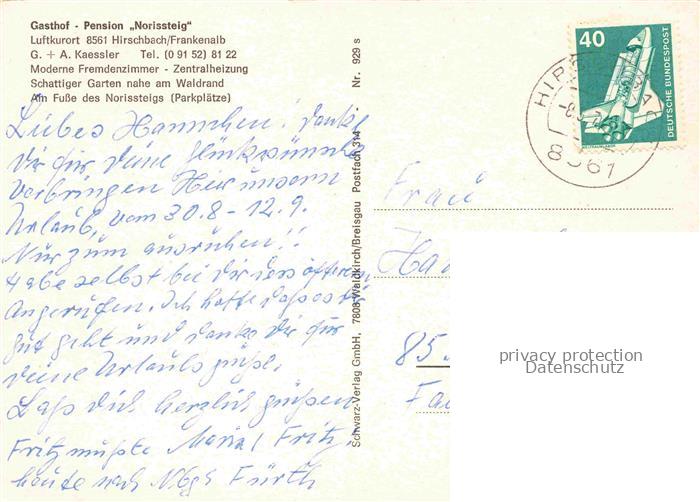 Gasthof - Pension „Norissteig"
Luftkurort 8561 Hirschbach/Frankenalb
G. + A. Kaessler Tel. (0 91 52) 81 22
Moderne Fremdenzimmer - Zentralheizung
Schattiger Garten nahe am Waldrand
Am Fuße des Norissteigs (Parkplätze)
Liebes Hannchen! danke
dir für deine Glückwünsche
Verbringen Hier unsern
Urlaub, vom 30.8 - 12.9.
Nur zum ausruhen!!
Habe selbst bei dir des öfteren
Angerufen. Ich hoffe dass es dir
gut geht und danke dir für
deine Urlaubsgrüße.
Lass dich herzlich grüßen
Fritz mußte Maria, Fritz,
heute nach Nbg Fürth
Schwarz-Verlag GmbH, 7808 Waldkirch/Breisgau Postfach 314 · Nr. 929 s
40
DEUTSCHE BUNDESPOST
8561
Frau
Ha
85
privacy protection
Datenschutz